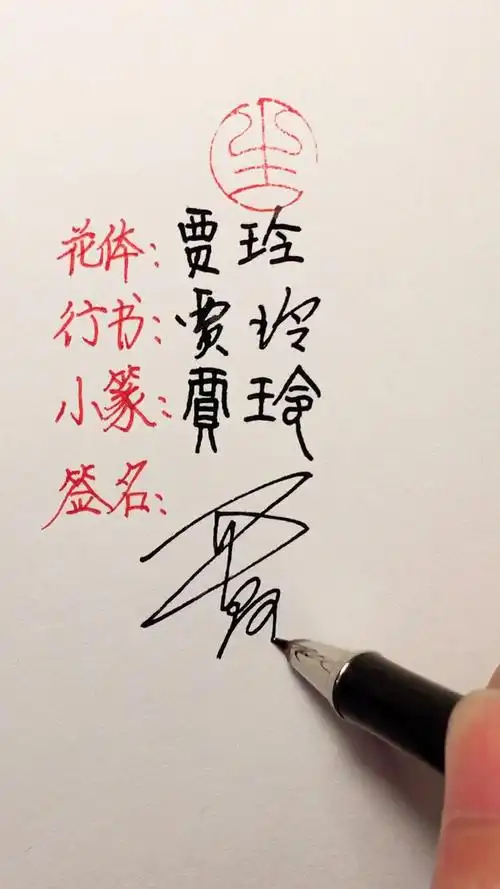 花体：贾玲
行书：贾玲
小篆：賈玲
签名：